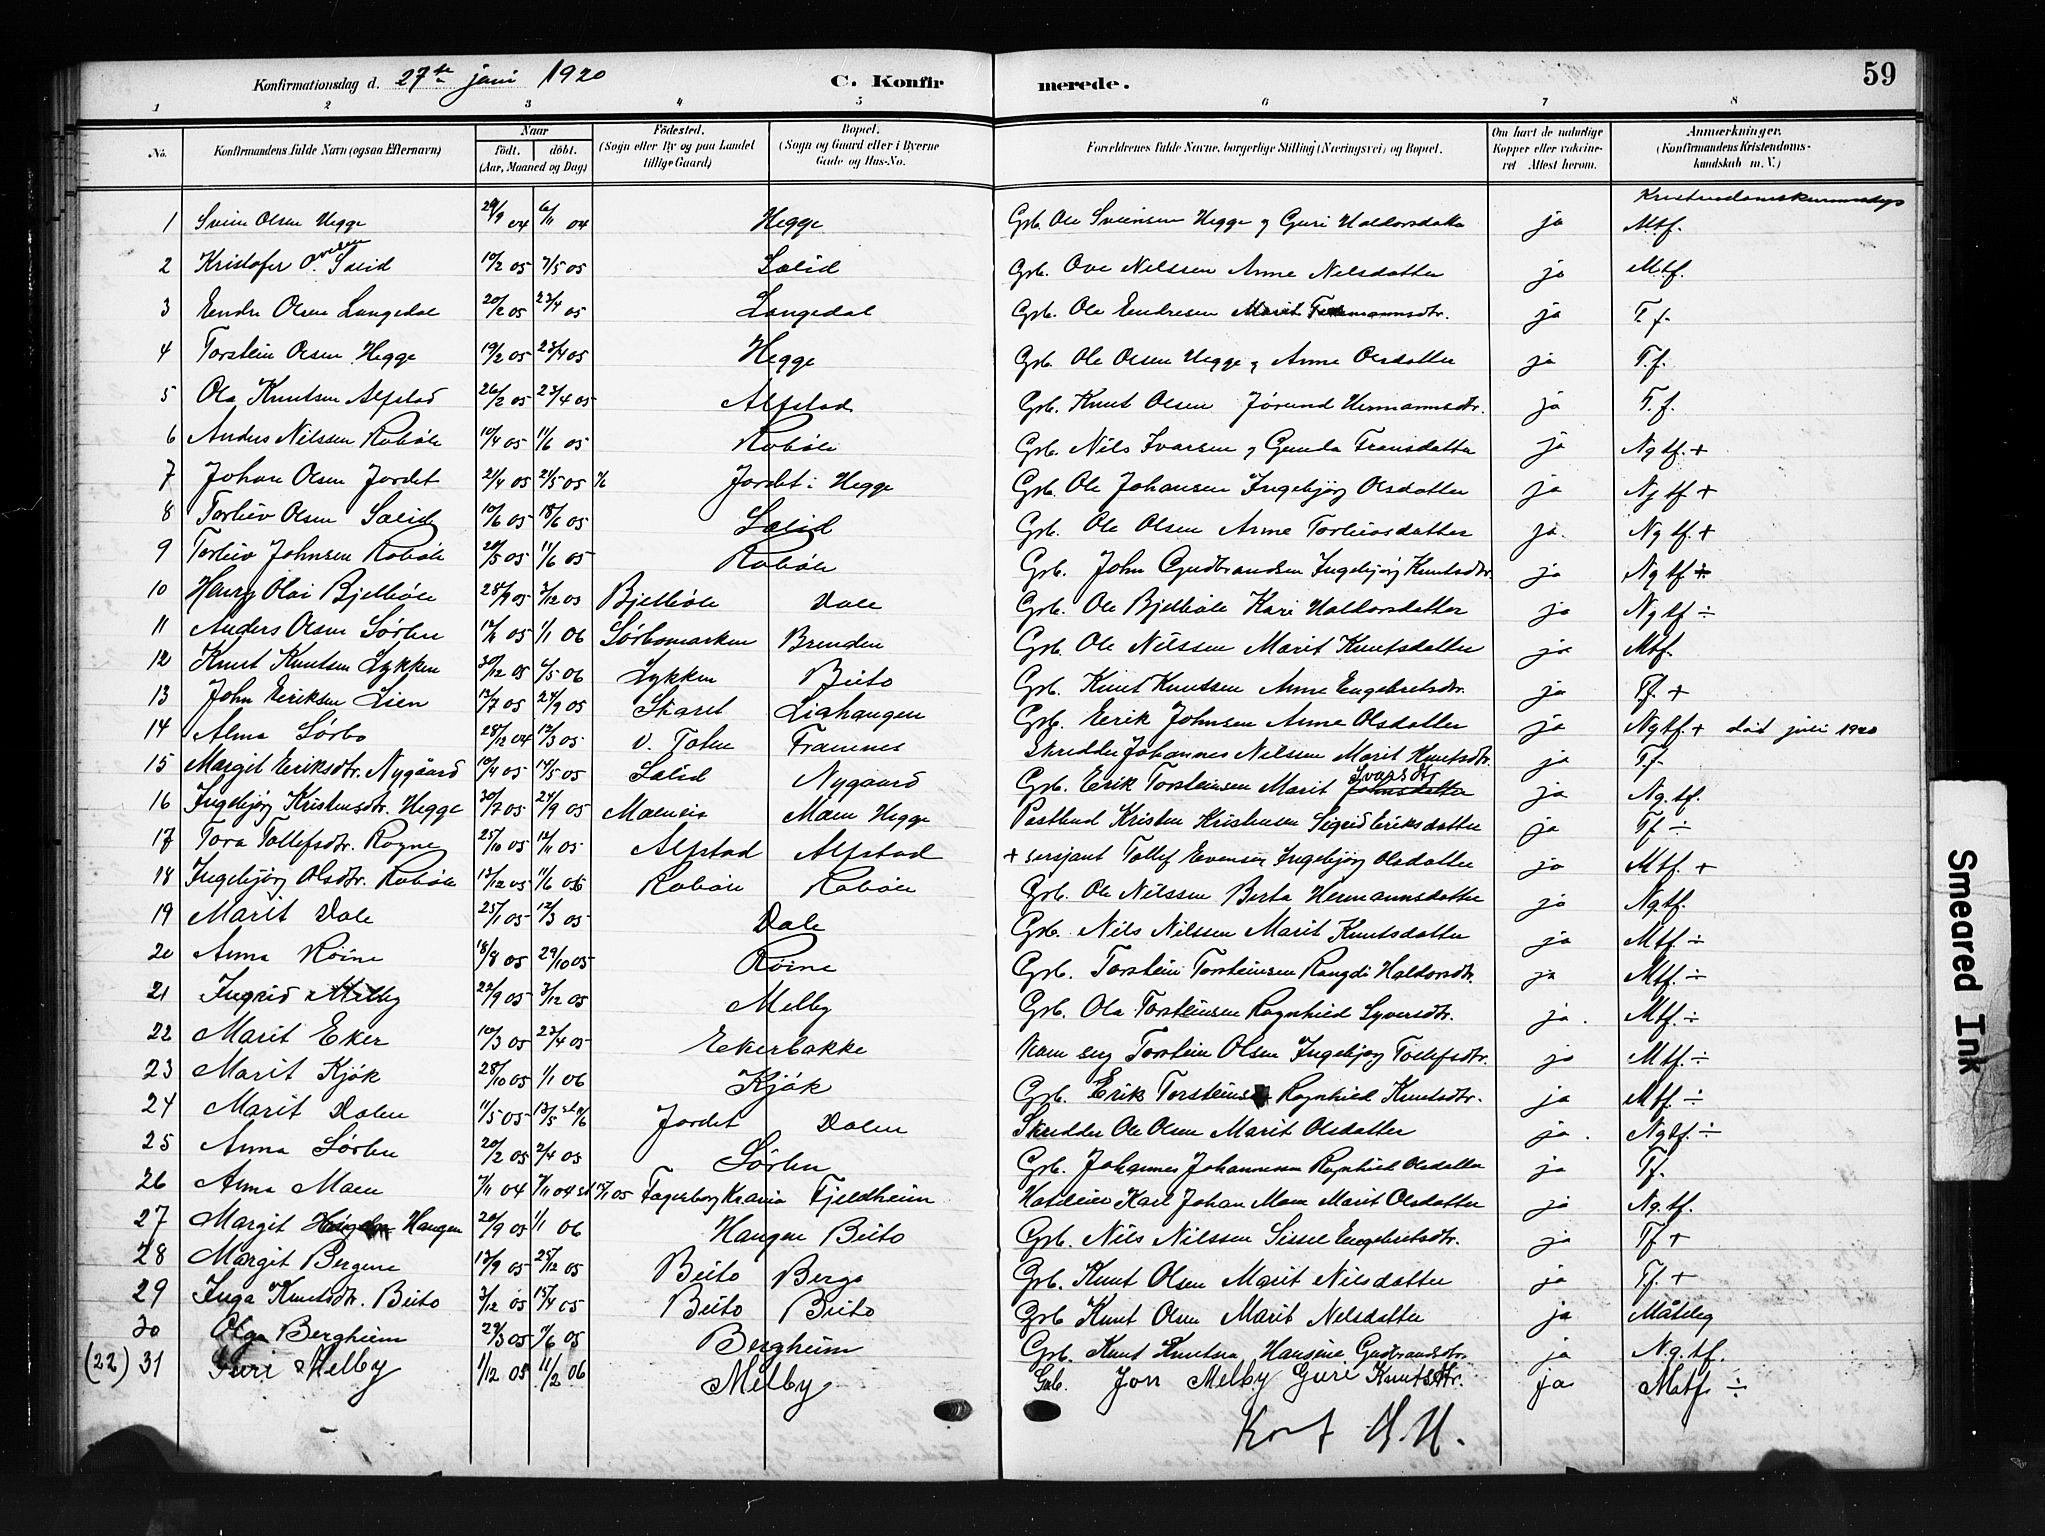 Konfirmationsdag d. 27de juni 1920 C. Konfirmerede. 59
1 2 3 4 5 6 7 8
No. Konfirmandens fulde Navn (ogsaa Efternavn) Naar födt. döbt. (Aar, Maaned og Dag) Födested. (Sogn eller By og paa Landet tillige Gaard) Bopæl. (Sogn og Gaard eller i Byerne Gade og Hus-No. Forældrenes fulde Navne, borgerlige Stilling (Næringsvei) og Bopæl. Om havt de naturlige Kopper eller vaccineret Attest herom. Anmærkninger. (Konfirmandens Kristendomskundskab m. V.)
1 Svein Olsen Hegge 24/9 04 6/11 04 Hegge Grb. Ole Sveinsen Hegge og Guri Haldorsdatter ja Mtf.
2 Kristofer Ovesen Sælid 10/2 05 7/5 05 Sælid Grb. Ove Nilssen Anne Nilsdatter ja Mtf.
3 Endre Olsen Langedal 20/2 05 23/4 05 Langedal Grb. Ole Endresen Marit ja T.f.
4 Torstein Olsen Hegge 19/2 05 23/4 05 Hegge Grb. Ole Olsen Hegge og Anne Olsdatter ja T.f.
5 Ola Knutsen Alfstad 26/2 05 23/4 05 Alfstad Grb. Knut Olsen Jørund Hermannsdtr. ja T.f.
6 Anders Nilssen Robøle 10/4 05 11/6 05 Robøle Grb. Nils Ivarsen og Gunda Fransdatter ja Ngtf.+
7 Johan Olsen Jordet 21/4 05 21/5 05 Jordet i Hegge Grb. Ole Johansen Ingebjørg Olsdatter ja Ngtf +
8 Torleiv Olsen Sælid 10/6 05 18/6 05 Sælid Grb. Ole Olsen Anne Torleivsdatter ja. Ngtf.+
9 Torleiv Johnsen Robøle 20/5 05 11/6 05 Robøle Grb. John Gudbrandsen Ingebjørg Knutsdtr. ja Ngtf ÷
10 Harry Olai Bjelbøle 28/9 05 3/12 05 Bjelbøle Dale Grb. Ole Bjelbøle Kari Haldorsdatter ja Ngtf ÷
11 Anders Olsen Sørlien 05 1/1 06 Brenden Grb. Ole Nilssen Marit Knutsdatter ja Mtf.
12 Knut Knutsen Lykken 30/12 05 6/5 06 Lykken Beito Grb. Knut Knutssen Anne Engebretsdtr. ja Tf. +
13 John Eriksen Lien 13/7 05 24/9 05 Skaret Liahaugen Grb. Erik Johnsen Anne Olsdatter ja Ngtf.+ død juli 1920
14 Alma Sørbo 28/12 04 12/3 05 V. Toten Framnes Skredder Johannes Nilssen Marit Knutsdtr. ja Tf.
15 Margit Eriksdtr. Nygaard 10/4 05 14/5 05 Sælid Nygaard Grb. Erik Torsteinsen Marit Ivarsdtr ja Ng.tf.
16 Ingebjørg Kristensdtr. Hegge 30/7 05 24/9 05 Moen Hegge Postbud Kristen Kristensen Sigrid Eriksdatter ja Tf ÷
17 Tora Tollefsdtr. Rogne 25/10 05 12/11 05 Alfstad Alfstad + sersjant Tollef Evensen Ingebjørg Olsdatter ja Mtf. +
18 Ingebjørg Olsdtr. Robøle 13/12 05 11/6 05 Robøle Robøle Grb. Ole Nilssen Berta Hermannsdatter ja Ngtf.
19 Marit Dale 25/1 05 12/3 05 Dale Grb. Nils Nilssen Marit Knutsdatter ja Mtf ÷
20 Anna Røine 18/8 05 29/10 05 Røine Grb. Torstein Torsteinsen Rangdi Haldorsdtr. ja Mtf. ÷
21 Ingrid Melby 22/9 05 3/12 05 Melby Grb. Ola Torsteinsen Ragnhild Syversdtr. ja. Mtf. ÷
22 Marit Eker 10/3 05 23/4 05 Ekerbakke Torstein Olsen Ingebjørg Tollefsdtr. ja Mtf. ÷
23 Marit Kjøk 28/10 05 1/1 06 Kjøk Grb. Erik Torsteinsen Ragnhild Knutsdtr. ja Mtf. ÷
24 Marit Dalen 11/5 05 Jordet Dalen Skredder Ole Olsen Marit Olsdatter ja. Ngtf. ÷
25 Anna Sørlien 20/2 05 2/4 05 Sørlien Grb. Johannes Johannesen Ragnhild Olsdatter ja Tf.
26 Anna Moen 7/11 04 Fagerborg Krania Fjeldheim Karl Johan Moen Marit Olsdatter ja Ng.tf.
27 Margit Haugen 20/9 05 1/1 06 Haugen Beito Grb. Nils Nilssen Sissel Engebretsdtr. ja Tf +
28 Margit Bergene 13/9 05 25/12 05 Beito Bergo Grb. Knut Olsen Marit Nilsdatter ja Tf. +
29 Inga Knutsdtr. Beito 3/12 05 15/4 05 Beito Beito Grb Knut Olsen Marit Nelsdatter ja Måteleg
30 Olga Bergheim 29/3 05 11/6 05 Bergheim Grb. Knut Knutsen Hansine Gudbrandsdtr. ja Ng.tf.
(22) 31 Guri Melby 1/12 05 11/2 06 Melby Grb. Jon Melby Guri Knutsdtr. ja Mtf ÷
Konf H.H.
Smeared Ink